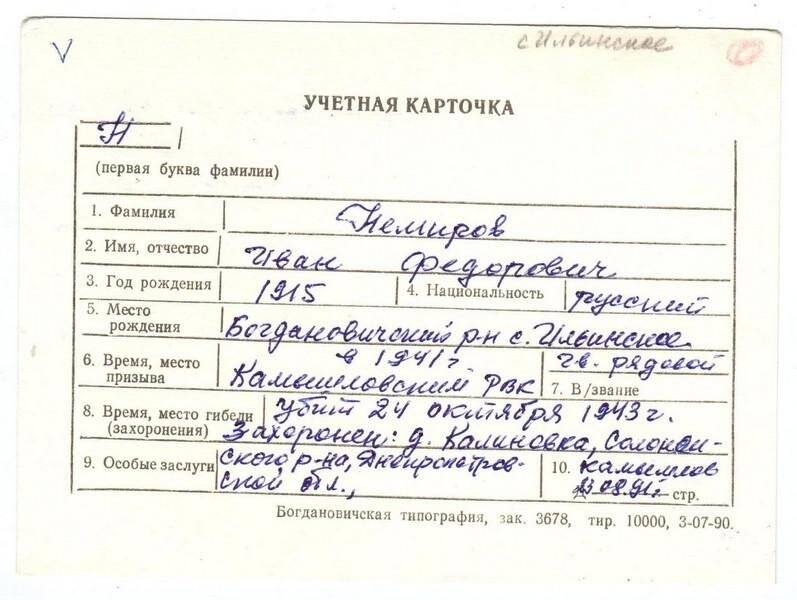 с Ильинское
УЧЕТНАЯ КАРТОЧКА
Н
(первая буква фамилии)
1. Фамилия Немиров
2. Имя, отчество Иван Федорович
3. Год рождения 1915 4. Национальность русский
5. Место
рождения Богдановичский р-н с. Ильинское
6. Время, место в 1941г гв. рядовой
призыва Камышловский РВК 7. В/звание
8. Время, место гибели убит 24 октября 1943 г.
(захоронения) Захоронен: д. Калиновка, Солонян-
9. Особые заслуги ского р-на, Днепропетров- 10. Камышлов
ской обл., 08.91г. стр.
Богдановичская типография, зак. 3678, тир. 10000, 3-07-90.